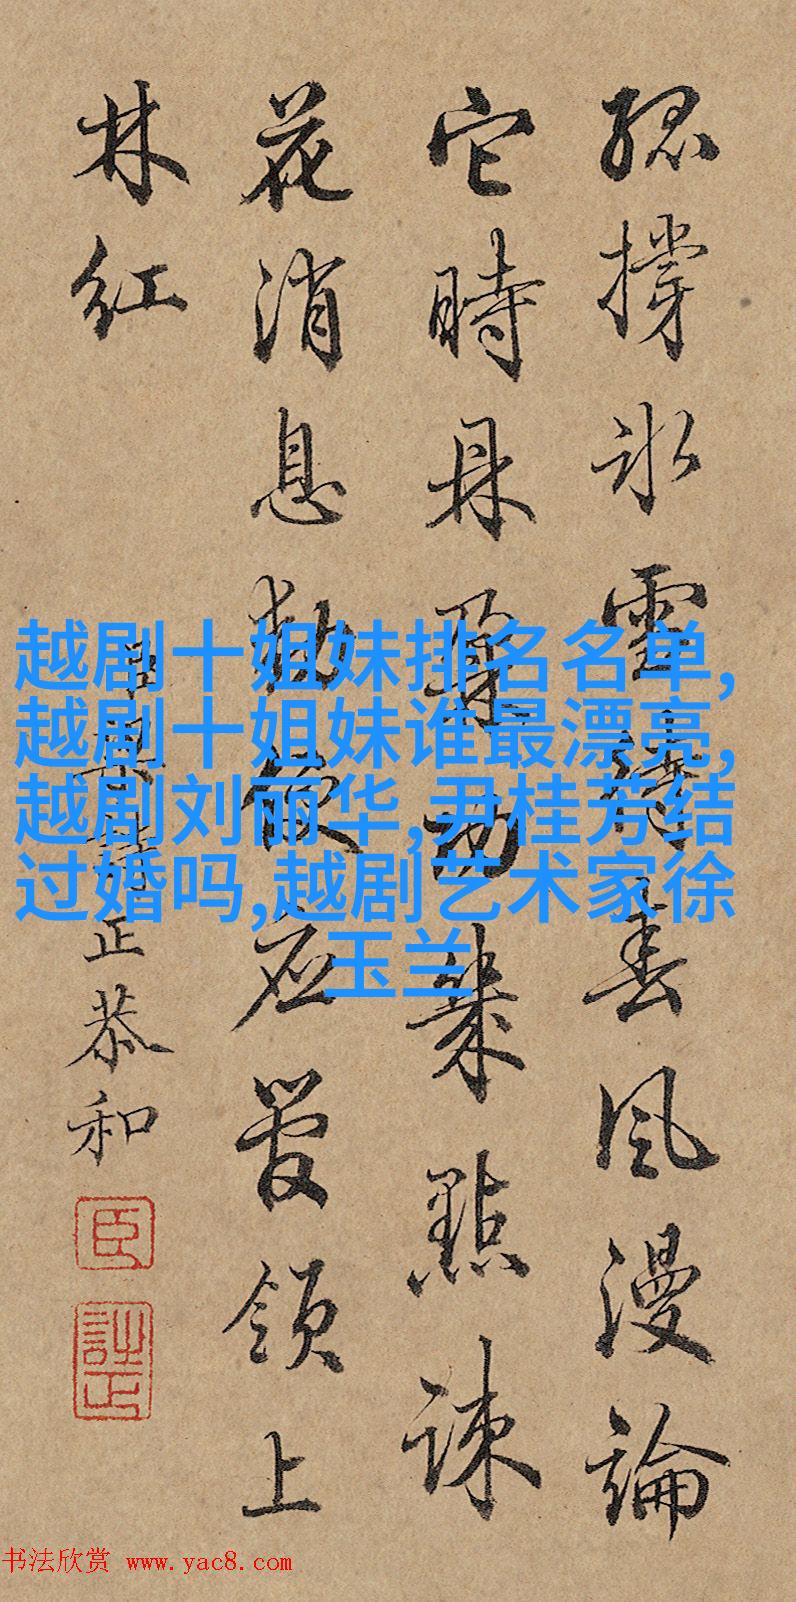 孤撐冰雪待春風漫論
它時鼎鼐功幾點疎
花消息動便應管領上
林紅
臣 正恭和
臣
詿正
越剧十姐妹排名名单,
越剧十姐妹谁最漂亮,
越剧刘丽华,尹桂芳结
过婚吗,越剧艺术家徐
玉兰
书法欣赏 www.yac8.com